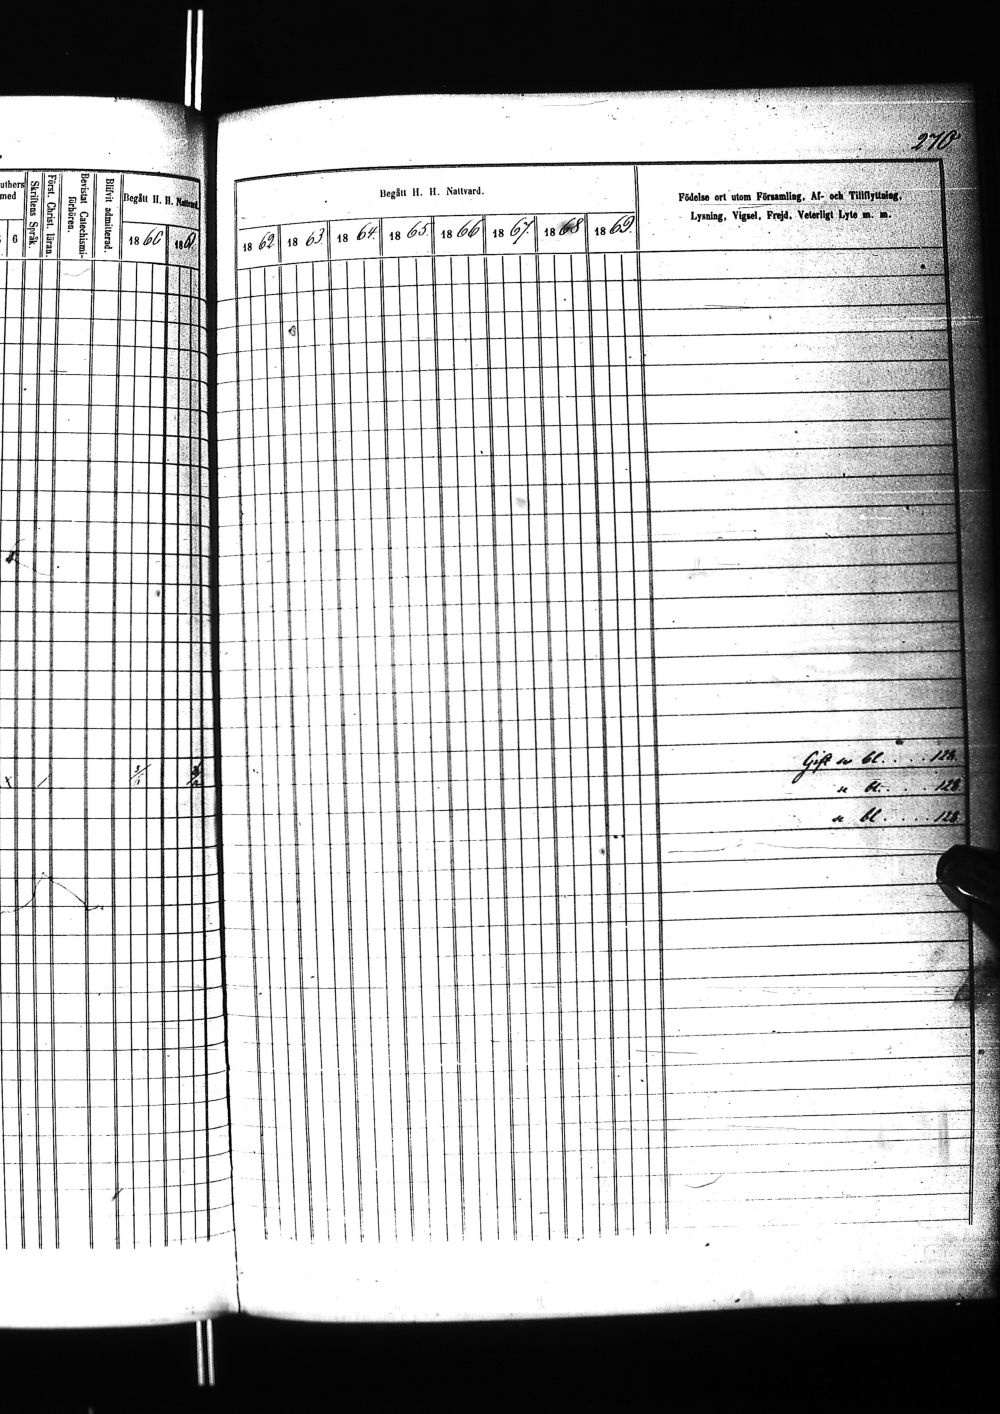 270
uthers
med
6
Skriftens Språk.
Först. Christ. läran.
Bevistat Catechismi-
förhören.
Blifvit admitterad.
Begått H. H. Nattvard.
1860 1861
Begått H. H. Nattvard.
1862. 1863. 1864. 1865. 1866 1867. 1868 1869.
Födelse ort utom Församling, Af- och Tillflyttning,
Lysning, Vigsel, Frejd, Veterligt Lyte m. m.
Gift bl. . . . 128.
bl. . . . 128.
bl. . . . 128.